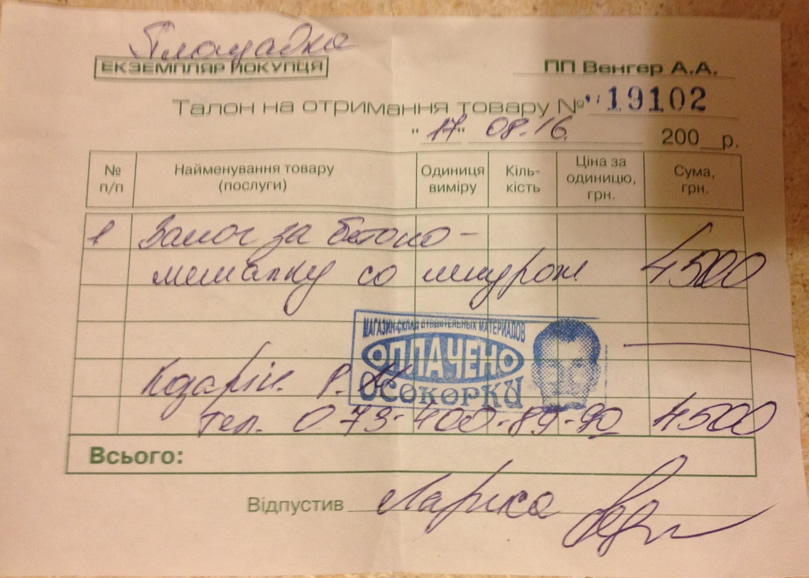 Площадка
ЕКЗЕМПЛЯР ПОКУПЦЯ
ПП Венгер А.А.
Талон на отримання товару № 19102
"17" 08.16. 200__р.
№ п/п
Найменування товару (послуги)
Одиниця виміру
Кіль-кість
Ціна за одиницю, грн.
Сума, грн.
1 Залог за бетоно-
мешалку со шнуром 4500
МАГАЗИН-СКЛАД СТРОИТЕЛЬНЫХ МАТЕРИАЛОВ
ОПЛАЧЕНО
ОСОКОРКИ
Р.
тел. 073-400-89-90 4500
Всього:
Відпустив Лариса